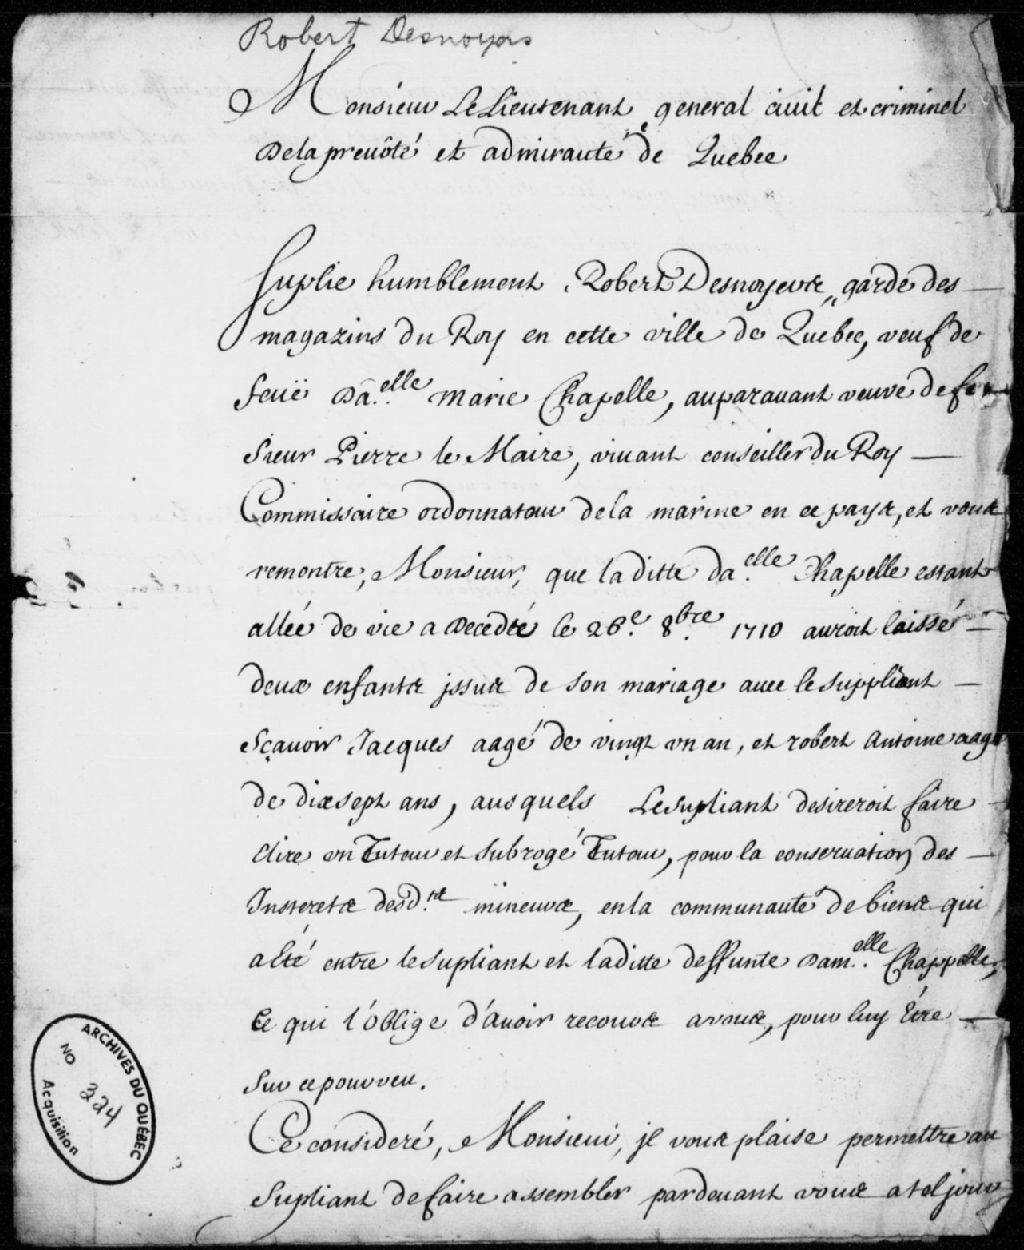 Robert Desnoyers
Monsieur Le Lieutenant general civil et criminel
De la prevôté et admirauté de Quebec
Suplie humblement Robert Desnoyers garde des
magazins du Roy en cette ville de Quebec, veuf de
feuë Da.elle marie Chapelle, auparavant veuve de feu
sieur Pierre le Maire, vivant conseiller du Roy
Commissaire ordonnateur de la marine en ce pays, et vous
remontre, Monsieur, que laditte da.elle Chapelle estant
allée de vie a Decedté le 26.e 8bre 1710 auroit laissé
deux enfants jssus de son mariage avec le suppliant
Sçavoir Jacques aagé de vingt vn an, et robert Antoine aagé
de dixsept ans, ausquels Le supliant desireroit faire
elire vn Tuteur et subrogé Tuteur, pour la conservation des
Interets desd.ts mineurs, en la communauté de biens qui
a êté entre le supliant et laditte deffunte dam.elle Chappelle,
Ce qui l'oblige d'avoir recours a vous, pour luy être
sur ce pourveu.
Ce consideré, Monsieur, jl vous plaise permettre au
supliant de faire assembler pardevant vous a tel jour
ARCHIVES DU QUÉBEC
NO
334
Acquisition